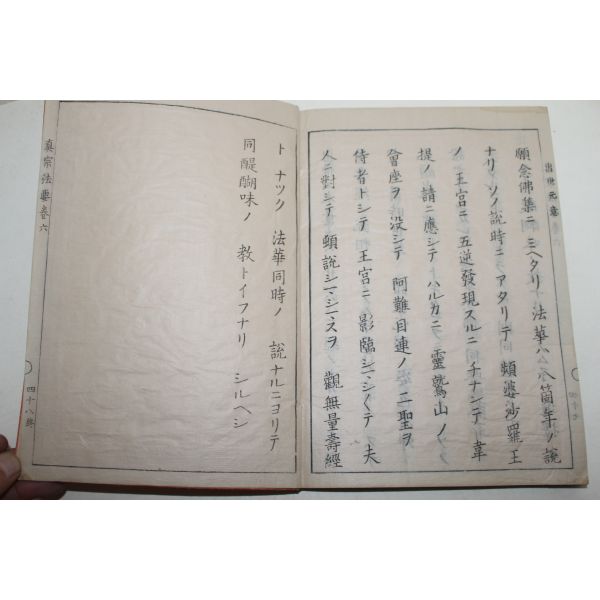 出世元意
願念佛集ニ ミヘタリ 法華ハ 八箇年ノ 説
ナリ ソノ 説時ニ アタリテ 頻婆沙羅王
ノ 王宮ニ 五逆發現スルニ チナンテ 韋
提ノ 請ニ 應シテ ハルカニ 靈鷲山ノ
會座ヲ 没シテ 阿難目連ノ 二聖ヲ
侍者トシテ 王宮ニ 影臨シマシ〱テ 夫
人ニ 對シテ 頓説シマシマスヲ 觀無量壽經
ト ナツク 法華同時ノ 説ナルニヨリテ
同醍醐味ノ 教トイフナリ シルヘシ
真宗法要卷六
四十八終